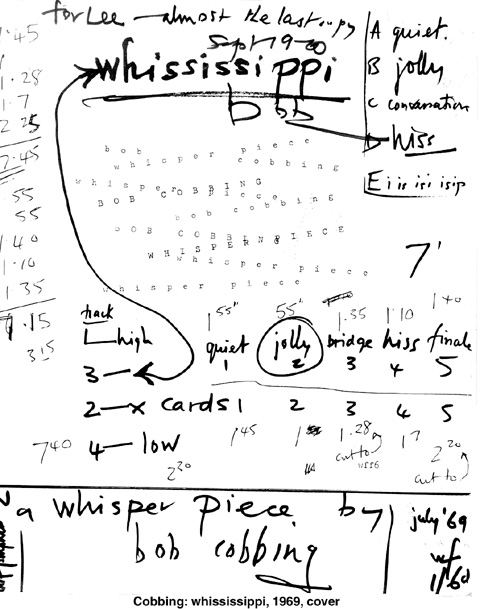 for Lee — almost the last copy
Sept 19-20
whississippi
bob
A quiet.
B jolly
C conversation
D hiss
E i is isi isip
1.45
1.28
1.7
2 25
7.45
55
55
1 40
1.10
1 35
7.15
3 15
bob piece
whisper cobbing
whisper piece
BOB COBBING
bob cobbing
BOB COBBING PIECE
WHISPER
whisper
whisper piece
whisper piece
7'
track
1 high
3
2 — x cards 1 2 3 4 5
4 — low
1 55" 55" 1.35 1 10 1 40
quiet jolly bridge hiss finale
1 2 3 4 5
7 40
2 20
1 45
1.28
cut to
1 7
2 20
cut to
a whisper piece by
bob cobbing
july '69
wf
1/6d
Cobbing: whississippi, 1969, cover